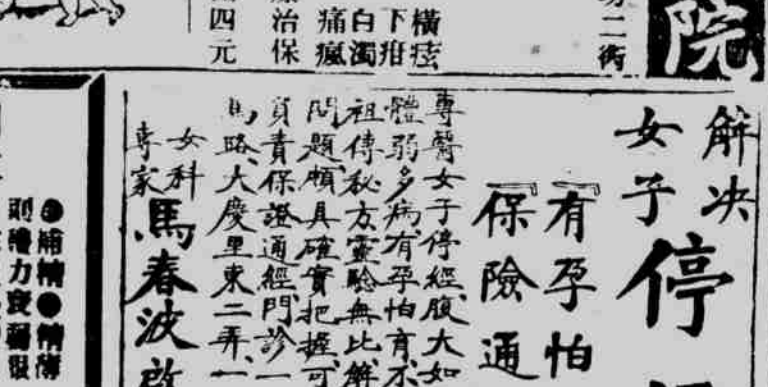 院
橫痃
下疳
白濁
痛瘋
治保
四元
二街
解決
女子停
『有孕怕
『保險通
專醫女子停經、腹大如
體弱多病、有孕怕育不
祖傳秘方靈驗無比解
問題頗具確實把握可
負責保證通經、門診一
馬路、大慶里東二弄、一
女科
專家
馬春波啟
●補精●精薄